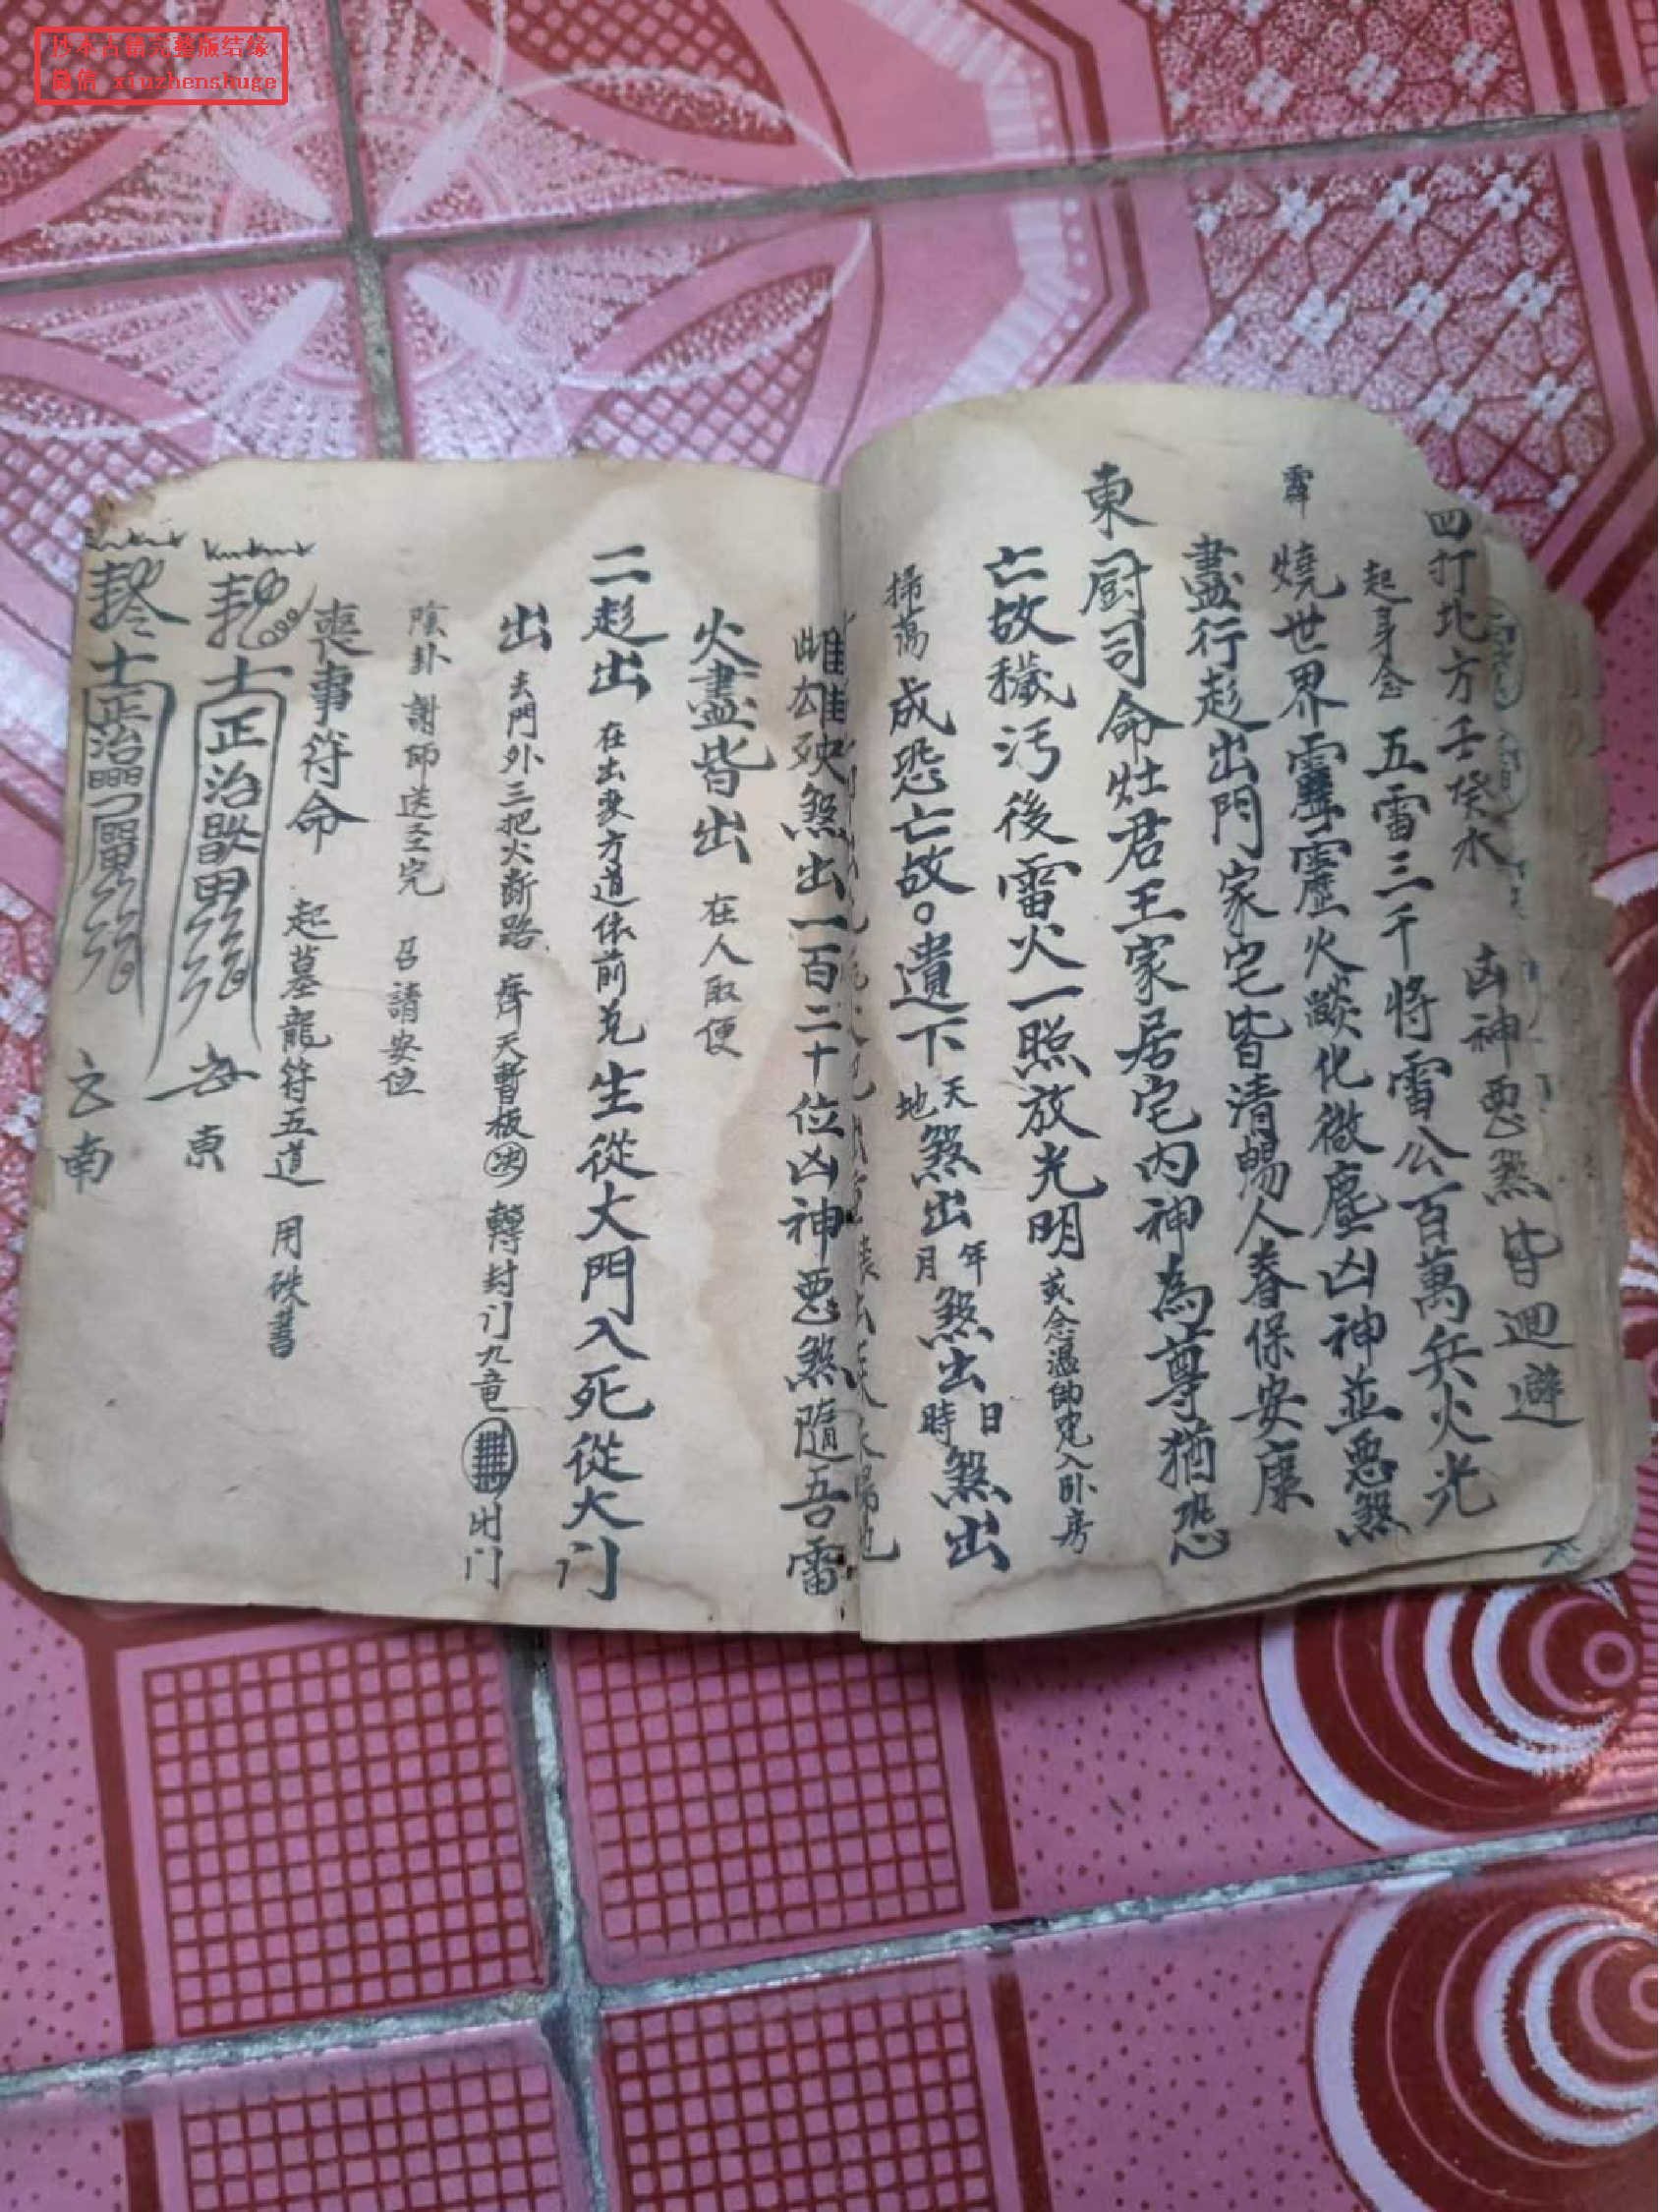 抄本古籍完整版结缘
微信 xiuzhenshuge
四打北方壬癸水 凶神恶煞皆迴避
起身念 五雷三千將雷公百萬兵火光
霹
燒世界霹靂火燄化微塵凶神並恶煞
盡行趕出門家宅皆清暢人眷保安康
東厨司命灶君王家居宅内神為尊猶恐
亡故穢污後雷火一照放光明 或念溫帥咒入卧房
掃蕩 成恐亡故。遺下天地煞出年月煞出日時煞出
雌雄殃煞出一百二十位凶神恶煞隨吾雷
火盡皆出 在人取便
二趕出 在出喪方道依前咒 生從大門入死從大门
出 去門外三把火断路 齊天暫板 轉封门九竜 出门
陰卦 謝師送圣完 召請安位
喪事符命 起墓龍符五道 用硃書
正治 東
正治 南